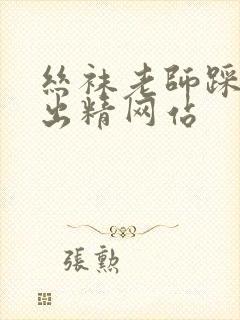 絲袜老師踩
出精网佔
張勲